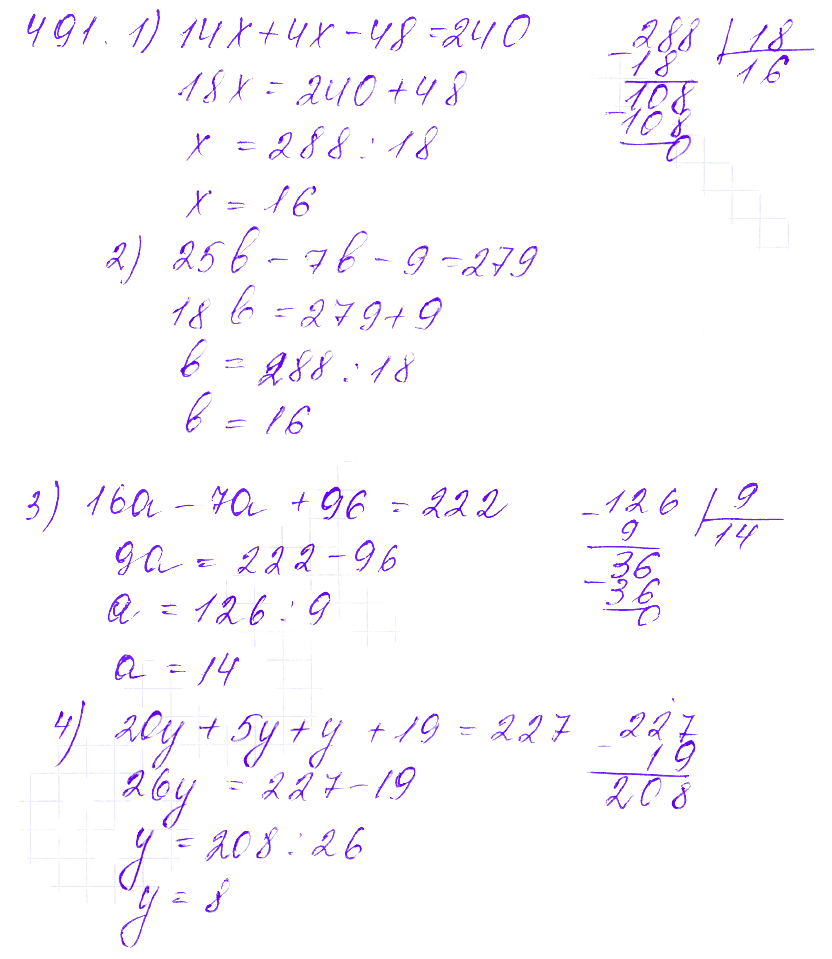 491. 1) 14x+4x-48=240
18x = 240+48
x = 288:18
x = 16
288 | 18
-18
16
108
-108
0
2) 25b-7b-9=279
18b=279+9
b = 288:18
b = 16
3) 16a-7a+96=222
9a=222-96
a = 126:9
a = 14
-126 | 9
9
14
36
-36
0
4) 20y+5y+y+19=227
26y = 227-19
y = 208:26
y = 8
227
-19
208